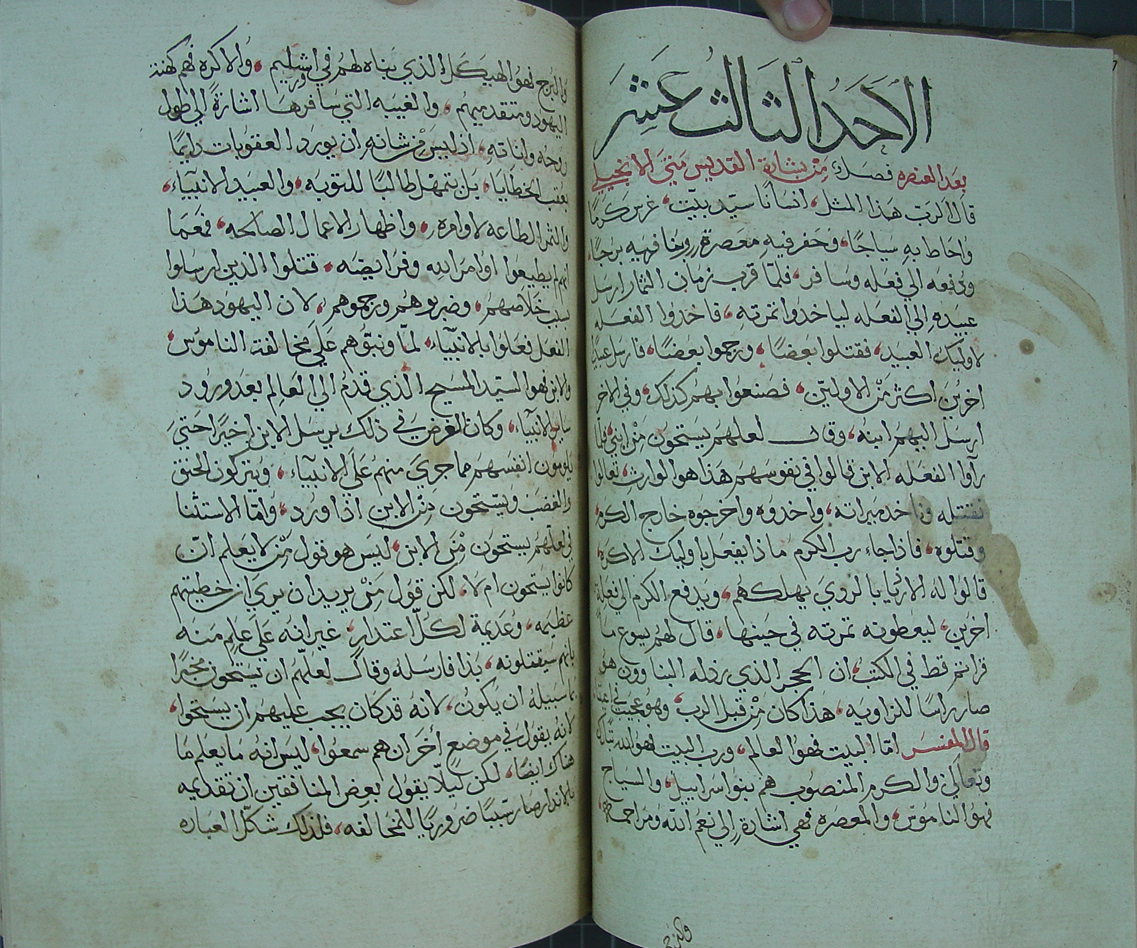 الاحد الثالث عشر
بعد العنصره فصل من بشارة القديس متي الانجيلي
قال الرب هذا المثل، انسانا سيد بيت، غرس كرما
واحاط به سياجا، وحفر فيه معصرة، وبنا فيه برجا
ودفعه الي فعله وسافر، فلما قرب زمان الثمار ارسل
عبيده الي الفعله لياخدوا ثمرته، فاخدوا الفعله
لاوليك العبيد، فقتلوا بعضا، ورجموا بعضا، فارسل عبيدا
اخرين اكثر من الاولين، فصنعوا بهم كذلك، وفي الاخر
ارسل اليهم ابنه، وقال لعلهم يستحون من ابني، فلما
راوا الفعله الابن قالوا في نفوسهم هذا هو الوارث، تعالوا
نقتله وناخد ميراته، واخدوه واخرجوه خارج الكرم
وقتلوه، فاذا جاء رب الكرم ماذا يفعل باوليك الاكرة،
قالوا له الاردياء بالردي يهلكهم، ويدفع الكرم الي فعلة
اخرين، ليعطونه ثمرته في حينها، قال لهم يسوع ما
قراتم قط في الكتب، ان الحجر الذي رذله البناوون هو
صار راسا للزاوية، هذا كان من قبل الرب، وهو عجيب في اعيننا
قال المفسر اما البيت فهو العالم، ورب البيت فهو الله تبارك
وتعالي، والكرم المنصوب هم بنو اسراييل، والسياج
فهو الناموس، والمعصره فهي اشارة الي نعم الله ومراحمه،
والبرج
والبرج فهو الهيكل الذي بناه لهم في اورشليم، والاكره فهم كهنة
اليهود ومتقدميهم، والغيبه التي سافرها اشارة الي طول
روحه واناته، اذ ليس من شانه ان يورد العقوبات دايما
بعقب الخطايا، بل يتمهل طالبا للتوبه، والعبيد الانبياء،
والثمر الطاعه لاوامره، واظهار الاعمال الصالحه، فعما
انهم يطيعوا اوامر الله وفرايضه، قتلوا الذين ارسلوا
بسبب خلاصهم، وضربوهم ورجموهم، لان اليهود هذا
الفعل فعلوا بالانبياء، لما وبخوهم علي مخالفة الناموس،
والابن فهو السيد المسيح الذي قدم الي العالم بعد ورود
ساير الانبياء، وكان الغرض في ذلك يرسل الابن اخيرا حتي
يلومون انفسهم مما جري منهم علي الانبياء، ويتركون الحنق
والغضب ويستحون من الابن اذا ورد، واما الاستثنا
في لعلهم يستحون من الابن، ليس هو قول من لا يعلم ان
كانوا يستحون ام لا، لكن قول من يريد ان يري ان خطيتهم
عظيمه، وعديمة لكل اعتدار، غير انه علي علم منه
بانهم سيقتلونه، بذا فارسله وقال لعلهم ان يستحون مخبرا
بما سبيله ان يكون، لانه قد كان يجب عليهم ان يستحوا،
لانه يقول في موضع اخر ان هم سمعوا، ليس انه ما يعلم ما
هناك ايضا، لكن ليلا يقول بعض المنافقين ان تقديمه
بالاندار صار سببا ضروريا للمخالفه، فلذلك شكل العباره